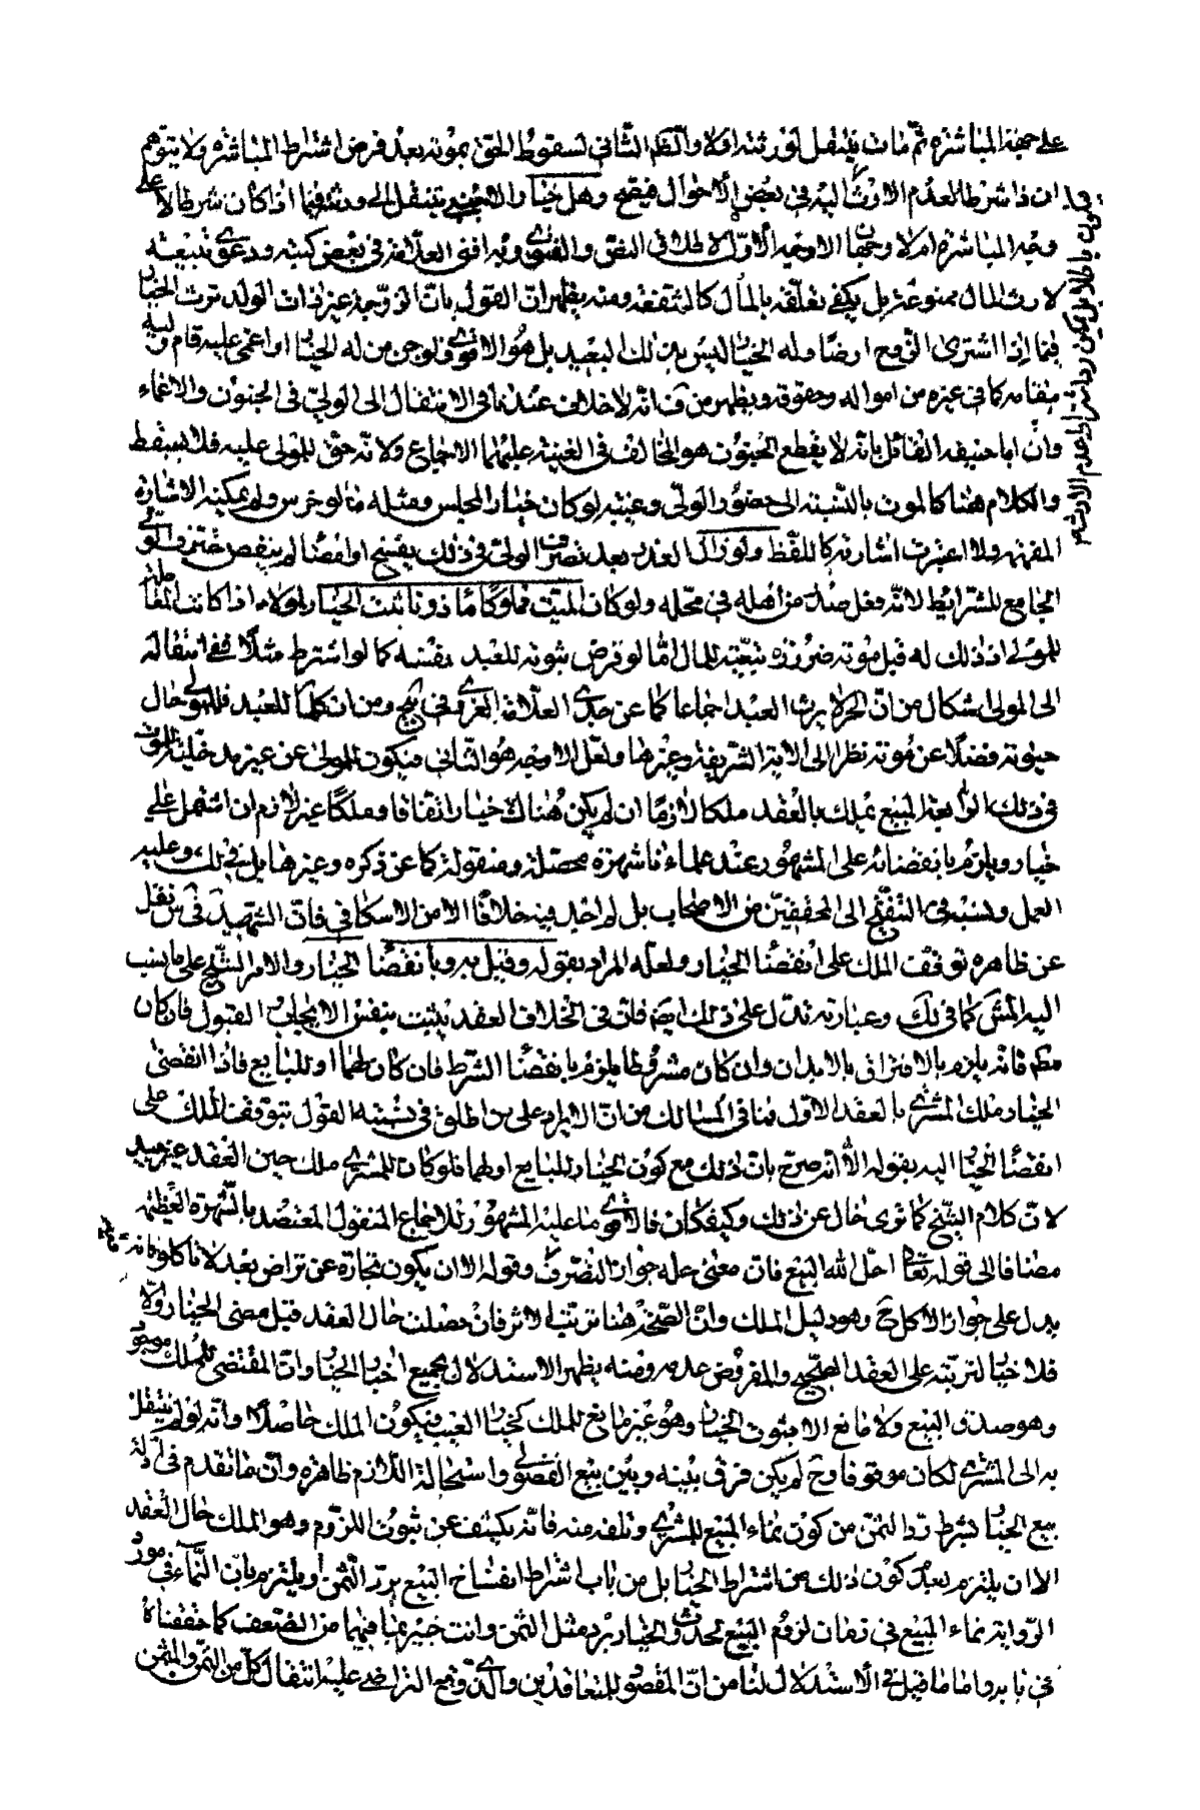 على جهة المباشرة ثم مات ينتقل لورثته اولا والظم الثاني لسقوط الحق بموته بعد فرض اشتراط المباشرة ولا يتوهم
ان ذا شرط لعدم الارث اليه في بعض الاحوال فيصح وهل خيار الاجنبي ينتقل الى ورثته فيما اذا كان شرطا لا على
وجه المباشرة ام لا وجهان الاوجه الاول لاطلاق النص والفتوى وبه افتى العلامة في بعض كتبه ودعوى تبعيته
لارث المال ممنوعة بل يكفي تعلقه بالمال كالمنفعة ومنه يظهر ان القول بان الزوجة غير ذات الولد ترث الخيار
فيما اذا اشترى الزوج ارضا وله الخيار ليس بذلك البعيد بل هو الاقوى ولو جن من له الخيار او اغمي عليه قام وليه
مقامه كما في غيره من امواله وحقوقه ويظهر من ف انه لا خلاف عندنا في الانتقال الى الولي في الجنون والاغماء
وان ابا حنيفة القائل بانه لا يقطع الجنون هو المخالف في الغنية عليهما الاجماع ولانه حق للمولى عليه فلا يسقط
والكلام هنا كالموت بالنسبة الى حضور الولي وغيبته لو كان خيار المجلس ومثله ما لو خرس ولم يمكنه الاشارة
المفهمة والا اعتبرت اشارته كاللفظ ولو زال العذر بعد تصرف الولي في ذلك بفسخ او امضاء لم ينقض تصرف الولي
الجامع للشرايط لانه فعل صدر من اهله في محله ولو كان الميت مملوكا مأذونا ثبت الخيار لمولاه اذا كانت المعاملة
للمولى اذ ذلك له قبل موته ضرورة تبعيته للمال اما لو فرض ثبوته للعبد نفسه كما لو اشترط مثلا ففي انتقاله
الى المولى اشكال من ان الحر لا يرث العبد اجماعا كما عن جدي العلامة الغروي في ومن ان كلما للعبد فللمولى حال
حيوته فضلا عن موته نظرا الى الاية الشريفة وغيرها ولعل الاوجه هو الثاني فيكون للمولى من غير مدخلية للموت
في ذلك الرابعة المبيع يملك بالعقد ملكا لازما ان لم يكن هناك خيار اتفاقا وملكا غير لازم ان اشتمل على
خيار ويلزم بانقضائه على المشهور عند علمائنا شهرة محصلة ومنقولة كما عن ذكره وغيرها بل في لك وعليه
العمل ونسبه في التنقيح الى المحققين من الاصحاب بل لم اجد فيه خلافا الا من الاسكافي فان الشهيد في س نقل
عن ظاهره توقف الملك على انقضاء الخيار ولعله المراد بقوله وقيل به وبانقضاء الخيار والامر الشيخ على ما نسب
اليه المشي كما في لك وعبارته تدل على ذلك ايضا فان في الخلاف العقد يثبت بنفس الايجاب والقبول فان كان
مطم فانه يلزم بالافتراق بالابدان وان كان مشروطا يلزم بانقضاء الشرط فان كان لهما او للبايع فاذا انقضى
الخيار ملك المشتري بالعقد الاول فما في المسالك من ان الايراد على من اطلق في نسبته القول بتوقف الملك على
انقضاء الخيار اليه بقوله الا انه صرح بان ذلك مع كون الخيار للبايع او لهما فلو كان للمشتري ملك حين العقد غير جيد
لان كلام الشيخ كما ترى خال عن ذلك وكيف كان فالاقوى ما عليه المشهور للاجماع المنقول المعتضد بالشهرة العظيمة
مضافا الى قوله تعالى احل الله البيع فان معنى حله جواز التصرف وقوله الا ان يكون تجارة عن تراض بعد لا تأكلوا فانه
يدل على جواز الاكل ح وهو دليل الملك وان الصحة هنا ترتب الاثر فان حصلت حال العقد قبل مضي الخيار والا
فلا خيار لترتبه على العقد الصحيح والمفروض عدمه ومنه يظهر الاستدلال بجميع اخبار الخيار وان المقتضى للملك موجود
وهو صدق البيع ولا مانع الا ثبوت الخيار وهو غير مانع للملك كخيار العيب فيكون الملك حاصلا وانه لو لم ينتقل
به الى المشتري لكان موقوفا وح لم يكن فرق بينه وبين بيع الفضولي واستحالة اللازم ظاهرة وان ما تقدم في ادلة
بيع الخيار بشرط رد الثمن من كون نماء المبيع للمشتري وتلفه منه فانه يكشف عن ثبوت اللزوم وهو الملك حال العقد
الا ان يلتزم بعد كون ذلك من اشتراط الخيار بل من باب اشتراط انفساخ البيع برد الثمن ويلتزم بان النماء في مورد
الرواية نماء المبيع في زمان لزوم البيع لحدوث الخيار برد مثل الثمن وانت خبير بما فيهما من الضعف كما حققناه
في بابه واما ما قيل في الاستدلال لنا من ان المقصود للمتعاقدين والذي وقع التراضي عليه انتقال كل من الثمن والمثمن
باطلا بل يمكن اشتراط عدم الارث